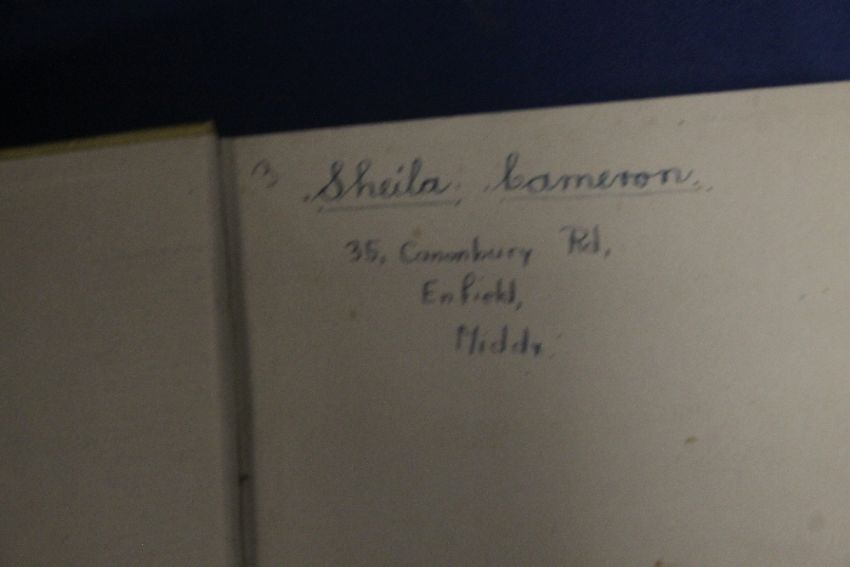 3 Sheila Cameron.
35, Canonbury Rd,
Enfield,
Middx.